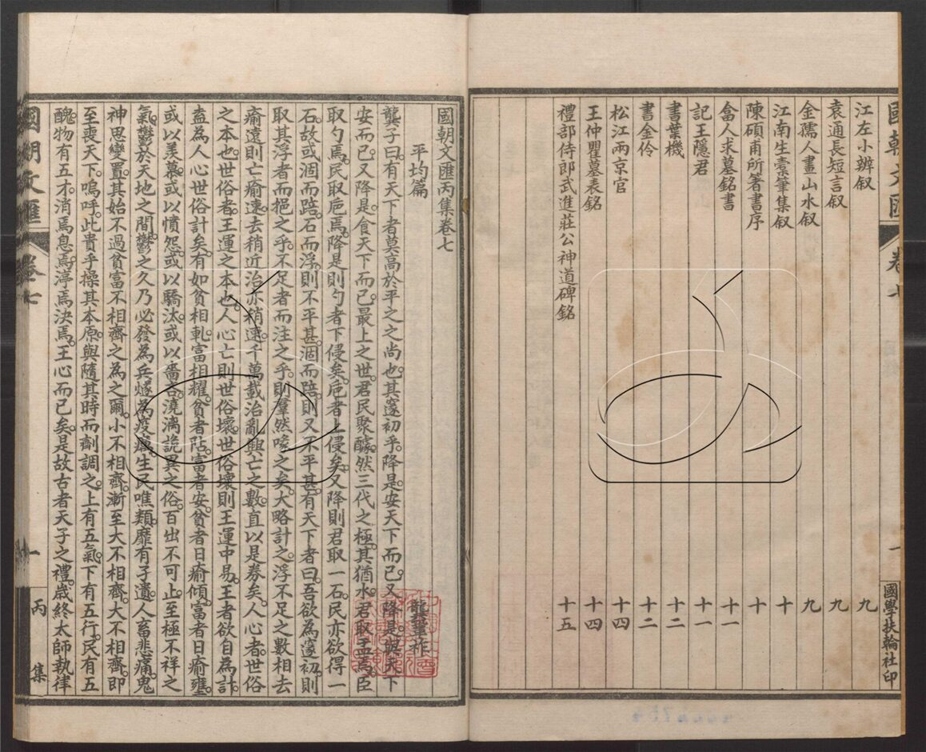 國朝文匯 卷七
江左小辨叙 九
袁通長短言叙 九
金孺人畫山水叙 九
江南生橐筆集叙 十
陳碩甫所箸書序 十
畣人求墓銘書 十一
記王隱君 十一
書葉機 十二
書金伶 十二
松江兩京官 十四
王仲瞿墓表銘 十四
禮部侍郎武進莊公神道碑銘 十五
一
國學扶輪社印
國朝文匯丙集卷七
平均篇 龔鞏祚
龔子曰有天下者莫高於平之之尚也其邃初乎降是安天下而已又降是與天下
安而已又降是食天下而已最上之世君民聚醵然三代之極其猶水君取盂焉臣
取勺焉民取卮焉降是則勺者下侵矣卮者上侵矣又降則君取一石民亦欲得一
石故或涸而踣石而浮則不平甚涸而踣則又不平甚有天下者曰吾欲為邃初則
取其浮者而挹之乎不足者而注之乎則羣然喙之矣大略計之浮不足之數相去
愈遠則亡愈速去稍近治亦稍速千萬載治亂興亡之數直以是券矣人心者世俗
之本也世俗者王運之本也人心亡則世俗壞世俗壞則王運中易王者欲自為計
盍為人心世俗計矣有如貧相軋富相耀貧者阽富者安貧者日愈傾富者日愈壅
或以羨慕或以憤怨或以驕汰或以嗇吝澆漓詭異之俗百出不可止至極不祥之
氣鬱於天地之間鬱之久乃必發為兵燧為疫癘生民噍類靡有孑遺人畜悲痛鬼
神思變置其始不過貧富不相齊之為之爾小不相齊漸至大不相齊大不相齊即
至喪天下嗚呼此貴乎操其本原與隨其時而劑調之上有五氣下有五行民有五
醜物有五才消焉息焉渟焉決焉王心而已矣是故古者天子之禮歲終太師執律
國朝文匯 卷七
一
丙集